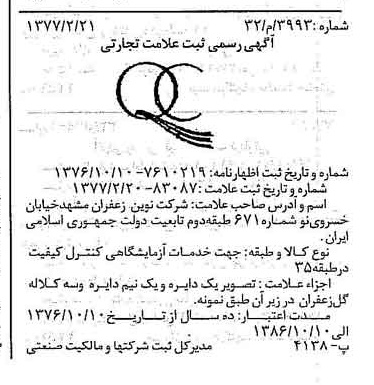 شماره :۳۹۹۳/م/۳۲
۱۳۷۷/۲/۲۱
آگهی رسمی ثبت علامت تجارتی
شماره و تاریخ ثبت اظهارنامه: ۷۶۱۰۲۱۹-۱۳۷۶/۱۰/۱۰
شماره و تاریخ ثبت علامت:۸۳۰۸۷-۱۳۷۷/۲/۲۰
اسم و آدرس صاحب علامت: شرکت نوین زعفران مشهدخیابان
خسروی‌نو شماره۶۷۱ طبقه‌دوم تابعیت دولت جمهوری اسلامی
ایران.
نوع کالا و طبقه: جهت خدمات آزمایشگاهی کنترل کیفیت
درطبقه۳۵
اجزاء علامت : تصویر یک دایره و یک نیم دایره وسه کلاله
گل‌زعفران در زیر آن طبق نمونه.
مدت اعتبار: ده سال از تاریخ۱۳۷۶/۱۰/۱۰
الی۱۳۸۶/۱۰/۱۰
پ-۴۱۳۸ مدیرکل ثبت شرکتها و مالکیت صنعتی